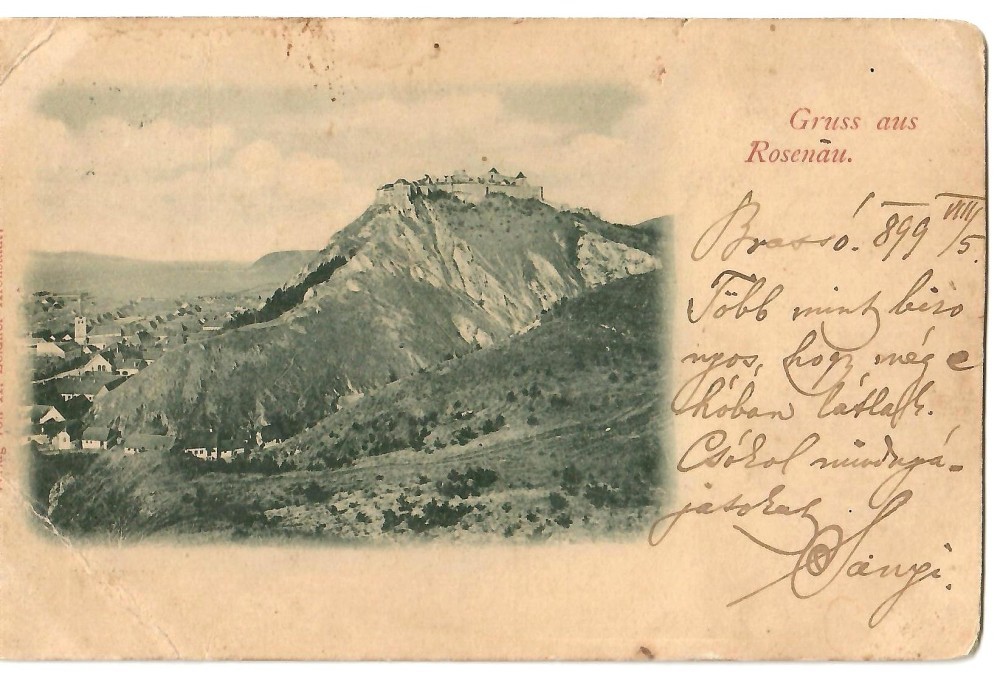 Gruss aus
Rosenau.
Brassó. 899 VIII/5.
Több mint bizo
nyos, hogy még e
hóban látlak.
Csókol mindnyá-
jatokat
Sanyi.